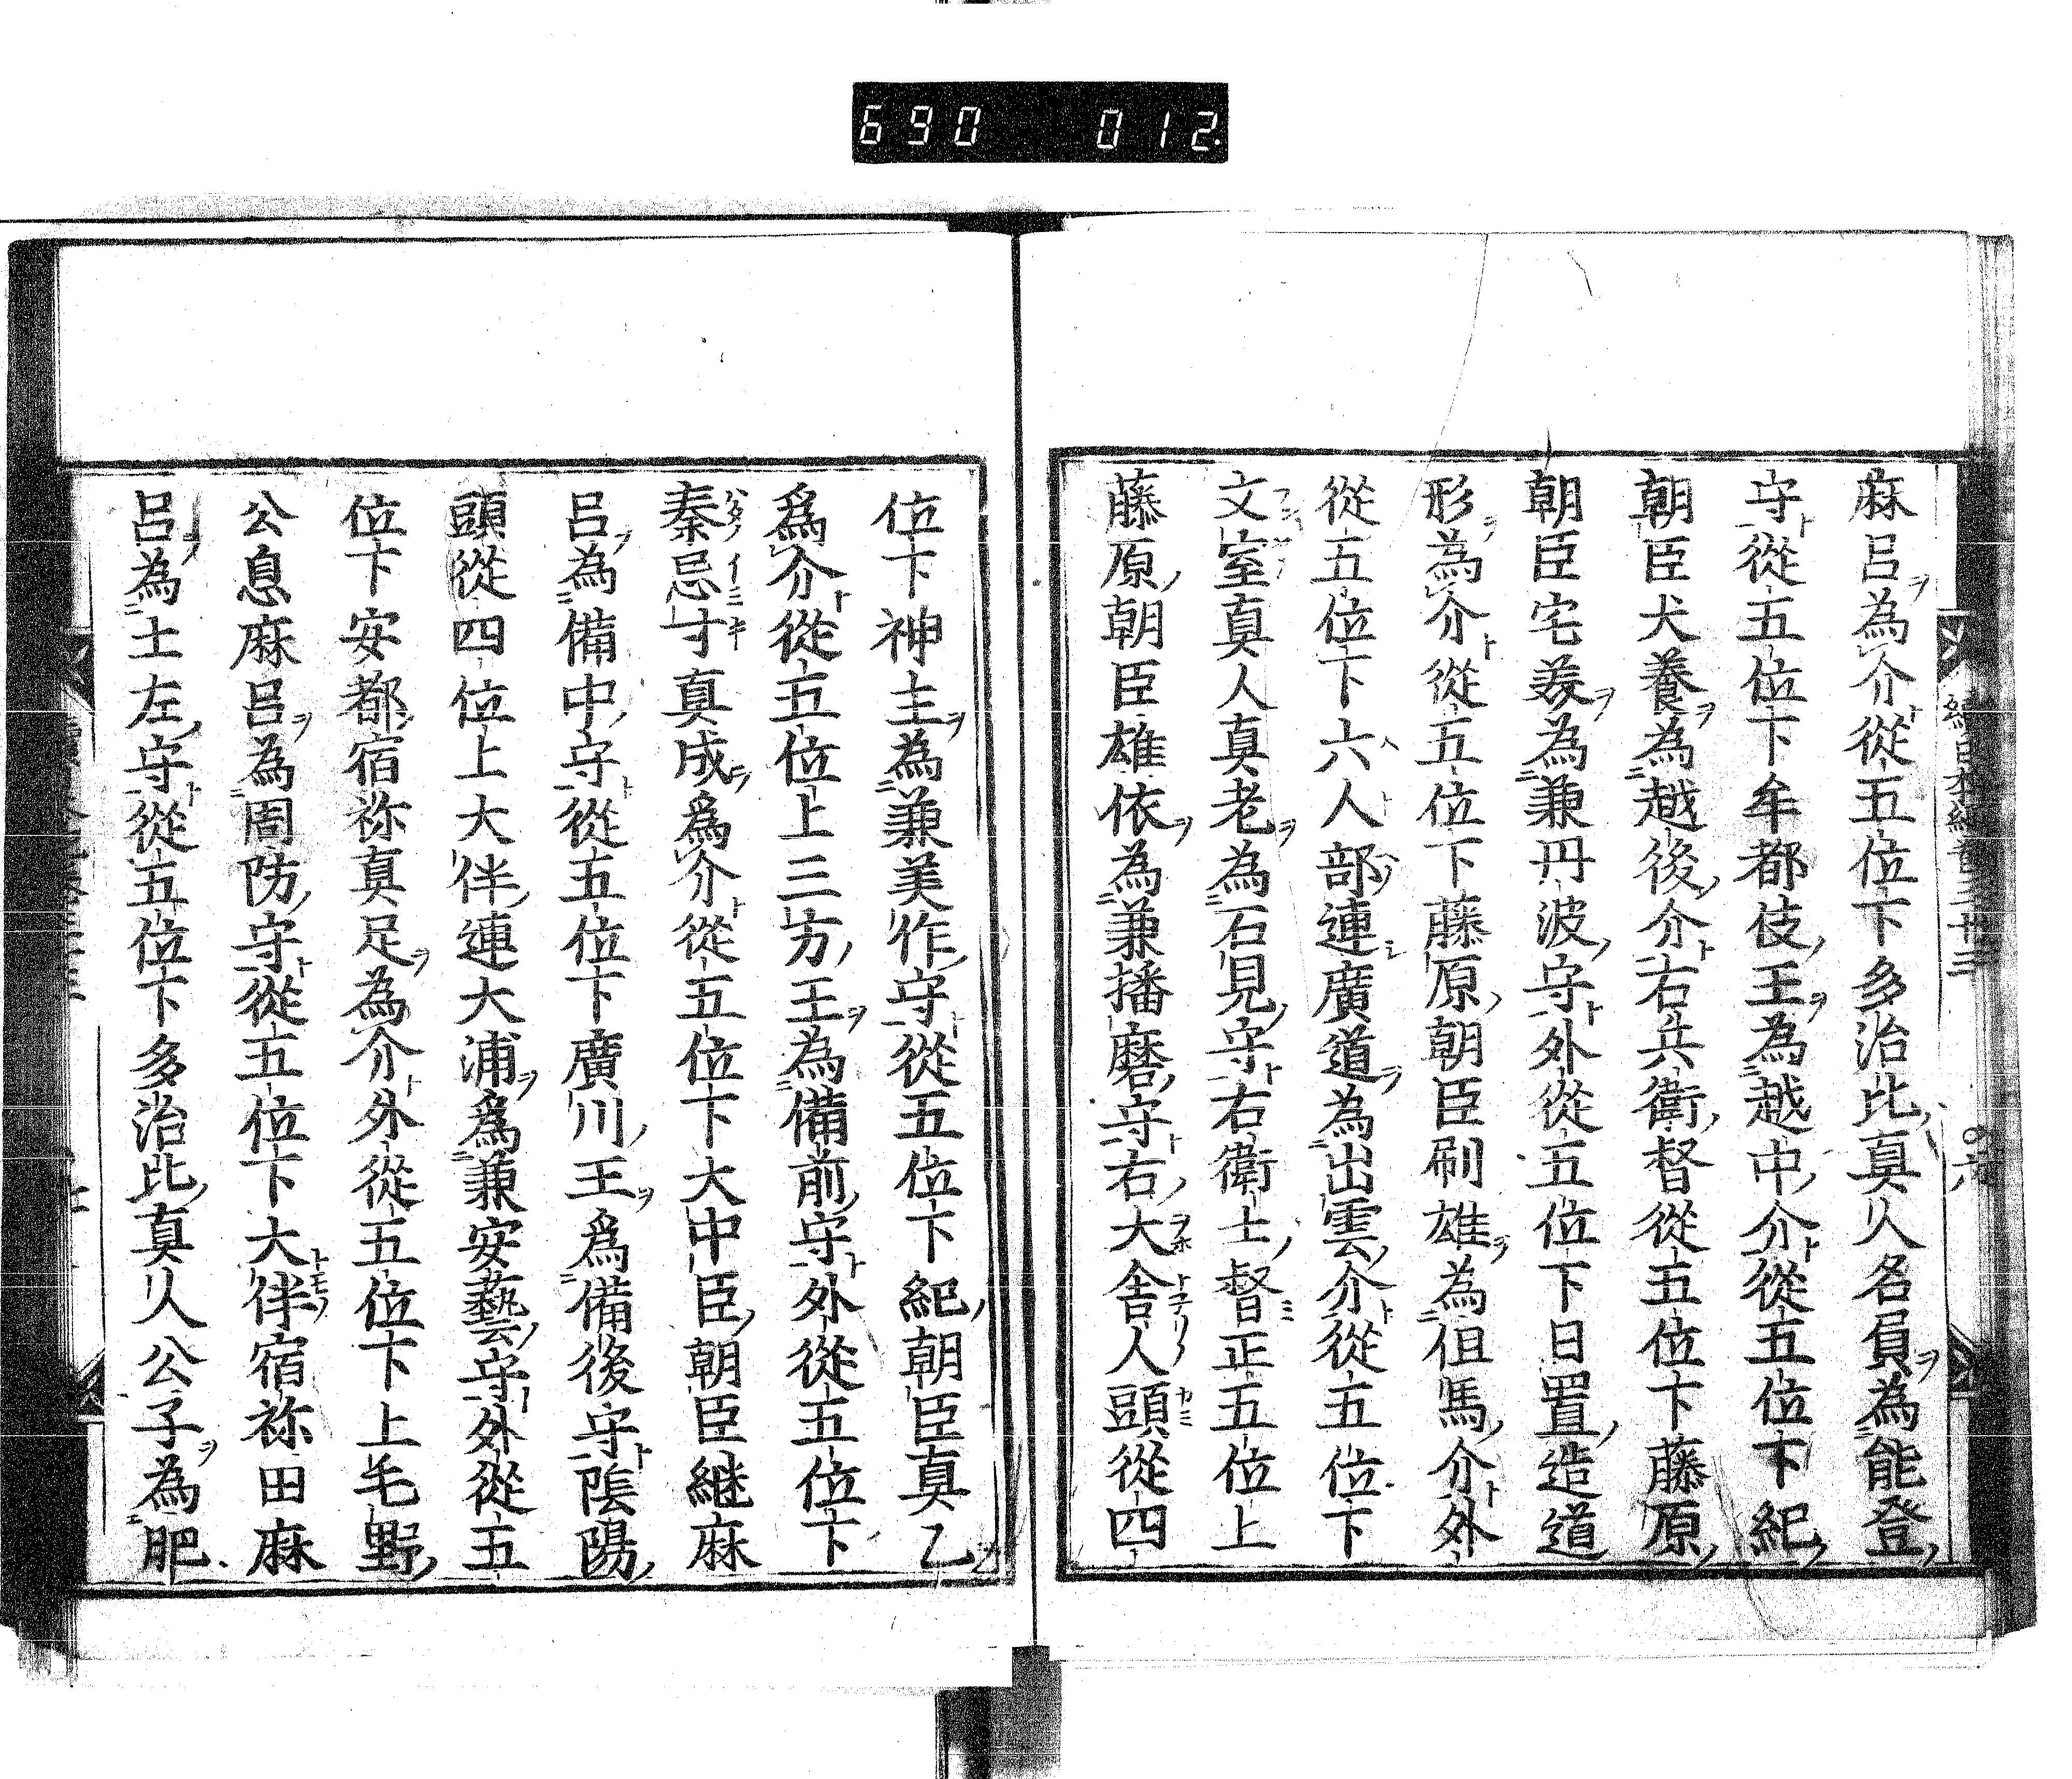 690 012
麻呂為介從五位下多治比真人名負為能登
守從五位下牟都伎王為越中介從五位下紀
朝臣犬養為越後介右兵衛督從五位下藤原
朝臣宅美為兼丹波守外從五位下日置造道
形為介從五位下藤原朝臣刷雄為但馬介外
從五位下六人部連廣道為出雲介從五位下
文室真人真老為石見守右衛士督正五位上
藤原朝臣雄依為兼播磨守右大舎人頭從四
位下神主為兼美作守從五位下紀朝臣真乙
為介從五位上三方王為備前守外從五位下
秦忌寸真成為介從五位下大中臣朝臣継麻
呂為備中守從五位下廣川王為備後守陰陽
頭從四位上大伴連大浦為兼安藝守外從五
位下安都宿祢真足為介外從五位下上毛野
公息麻呂為周防守從五位下大伴宿祢田麻
呂為土左守從五位下多治比真人公子為肥